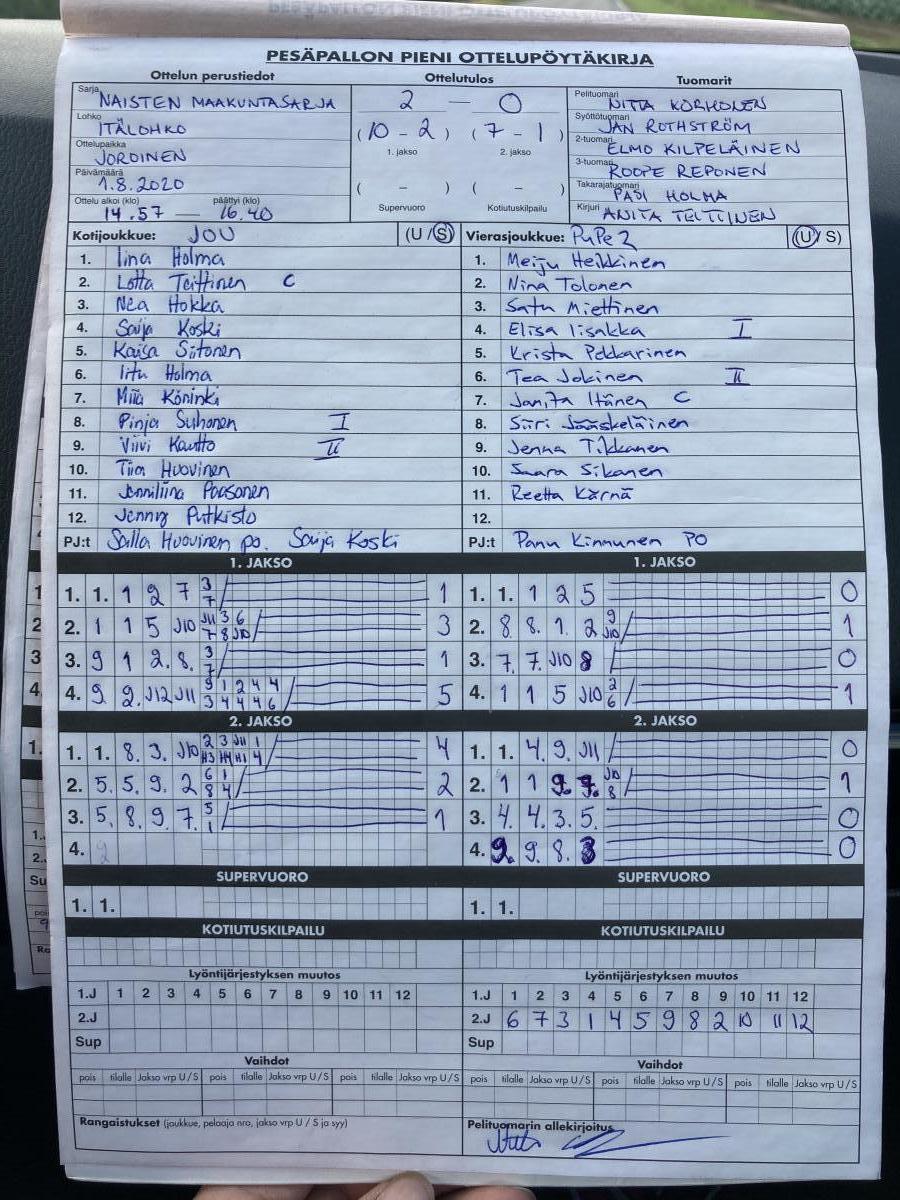 PESÄPALLON PIENI OTTELUPÖYTÄKIRJA
Ottelun perustiedot Ottelutulos Tuomarit
Sarja NAISTEN MAAKUNTASARJA
Lohko ITÄLOHKO
Ottelupaikka JOROINEN
Päivämäärä 1.8.2020
Ottelu alkoi (klo) 14.57 — päättyi (klo) 16.40
2 — 0
(10 - 2) (7 - 1)
1. jakso 2. jakso
( - ) ( - )
Supervuoro Kotiutuskilpailu
Pelituomari NITTA KORHONEN
Syöttötuomari JAN ROTHSTRÖM
2-tuomari ELMO KILPELÄINEN
3-tuomari ROOPE REPONEN
Takarajatuomari PASI HOLMA
Kirjuri ANITA TEITTINEN
Kotijoukkue: JOU (U / S)
1. Iina Holma
2. Lotta Teittinen C
3. Nea Hokka
4. Saija Koski
5. Kaisa Siitonen
6. Iitu Holma
7. Miia Köninki
8. Pinja Suhonen I
9. Viivi Kautto II
10. Tiia Huovinen
11. Jenniliina Paasonen
12. Jenny Putkisto
PJ:t Salla Huovinen po. Saija Koski
Vierasjoukkue: PuPe 2 (U / S)
1. Meiju Heikkinen
2. Nina Tolonen
3. Satu Miettinen
4. Elisa Iisakka I
5. Krista Pekkarinen
6. Tea Jokinen II
7. Janita Itänen C
8. Siiri Jääskeläinen
9. Jenna Tikkanen
10. Saara Sikanen
11. Reetta Kärnä
12.
PJ:t Panu Kinnunen PO
1. JAKSO
1. 1. 1 2 7 3 7 / 1
2. 1 1 5 J10 J11 3 6 7 8 J10 / 3
3. 9 1 2. 8. 3 7 / 1
4. 9 9. J12 J11 9 1 2 4 4 3 4 4 4 6 / 5
1. JAKSO
1. 1. 1 2 5 0
2. 8 8. 1. 2 9 J10 / 1
3. 7. 7. J10 8 / 0
4. 1 1 5 J10 2 6 / 1
2. JAKSO
1. 1. 8. 3. J10 2 3 J11 1 H3 H4 H1 4 / 4
2. 5. 5. 9. 2 6 1 8 4 / 2
3. 5. 8. 9. 7. 5 1 / 1
4. 9
2. JAKSO
1. 1. 4. 9. J11 / 0
2. 1 1 9. 7. J10 8 / 1
3. 4. 4. 3. 5. 0
4. 9. 9. 8. 3 0
SUPERVUORO SUPERVUORO
1. 1. 1. 1.
KOTIUTUSKILPAILU KOTIUTUSKILPAILU
Lyöntijärjestyksen muutos
1.J 1 2 3 4 5 6 7 8 9 10 11 12
2.J
Sup
Lyöntijärjestyksen muutos
1.J 1 2 3 4 5 6 7 8 9 10 11 12
2.J 6 7 3 1 4 5 9 8 2 10 11 12
Sup
Vaihdot Vaihdot
pois tilalle Jakso vrp U / S pois tilalle Jakso vrp U / S pois tilalle Jakso vrp U / S
pois tilalle Jakso vrp U / S pois tilalle Jakso vrp U / S pois tilalle Jakso vrp U / S
Rangaistukset (joukkue, pelaaja nro, jakso vrp U / S ja syy)
Pelituomarin allekirjoitus